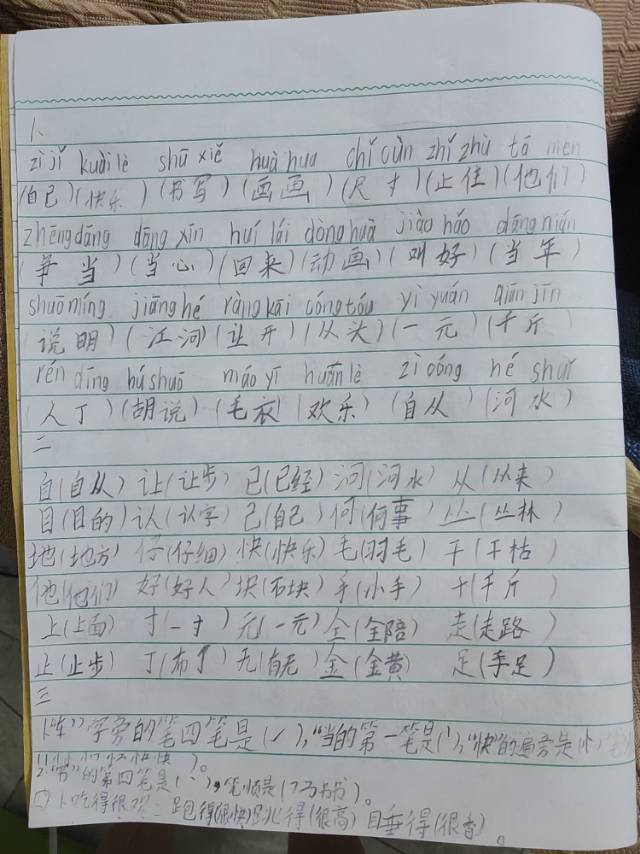 一、
zì jǐ kuài lè shū xiě huà hua chǐ cùn zhǐ zhù tā men
(自己)(快乐)(书写)(画画)(尺寸)(止住)(他们)
zhēng dāng dāng xīn huí lái dòng huà jiào hǎo dāng nián
(争当)(当心)(回来)(动画)(叫好)(当年)
shuō míng jiāng hé ràng kāi cóng tóu yì yuán qiān jīn
(说明)(江河)(让开)(从头)(一元)(千斤)
rén dīng hú shuō máo yī huān lè zì cóng hé shuǐ
(人丁)(胡说)(毛衣)(欢乐)(自从)(河水)
二
自(自从) 让(让步) 已(已经) 河(河水) 从(从来)
目(目的) 认(认字) 己(自己) 何(何事) 丛(丛林)
地(地方) 仔(仔细) 快(快乐) 毛(羽毛) 干(干枯)
他(他们) 好(好人) 块(石块) 手(小手) 千(千斤)
上(上面) 寸(一寸) 元(一元) 全(全陪) 走(走路)
止(止步) 丁(布丁) 无(有无) 金(金黄) 足(手足)
三
字旁的笔四笔是(㇀),"当的第一笔是(丨),"快"的偏旁是(忄)
2."书"的第四笔是(丶),笔顺是
跑得(很快) 得(很高) 目垂得(很香)。